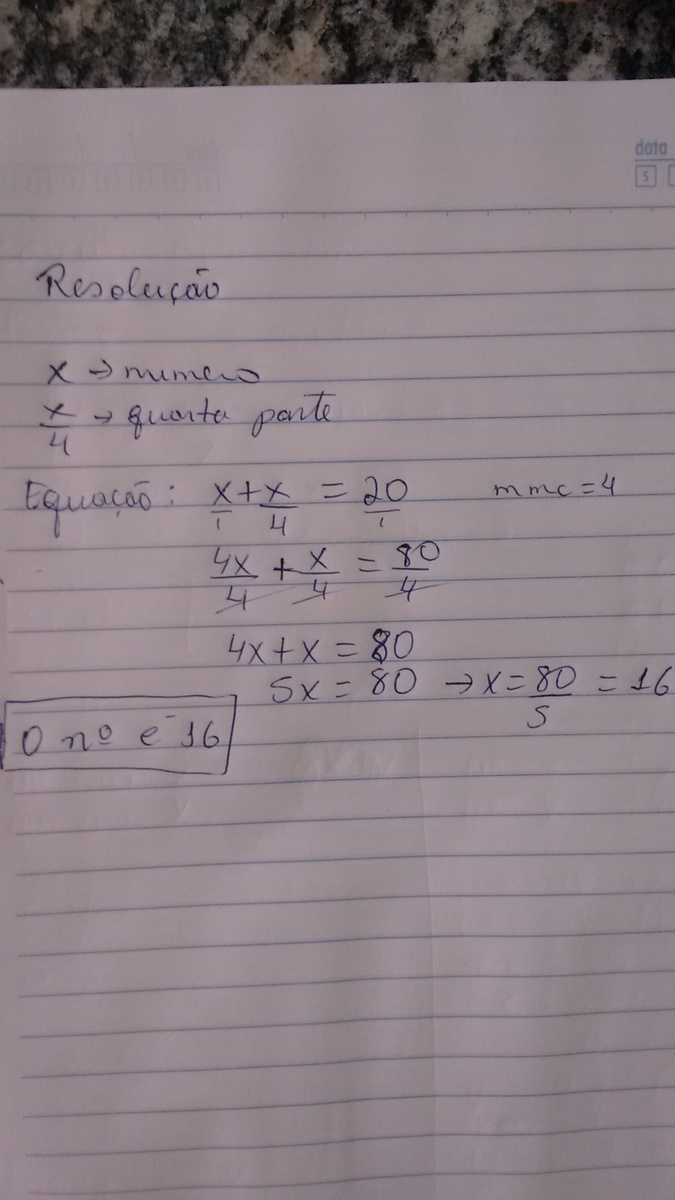 data
S
Resolução
x → numero
x/4 → quarta parte
Equação: x/1 + x/4 = 20/1 mmc = 4
4x/4 + x/4 = 80/4
4x + x = 80
5x = 80 → x = 80/5 = 16
O nº é 16